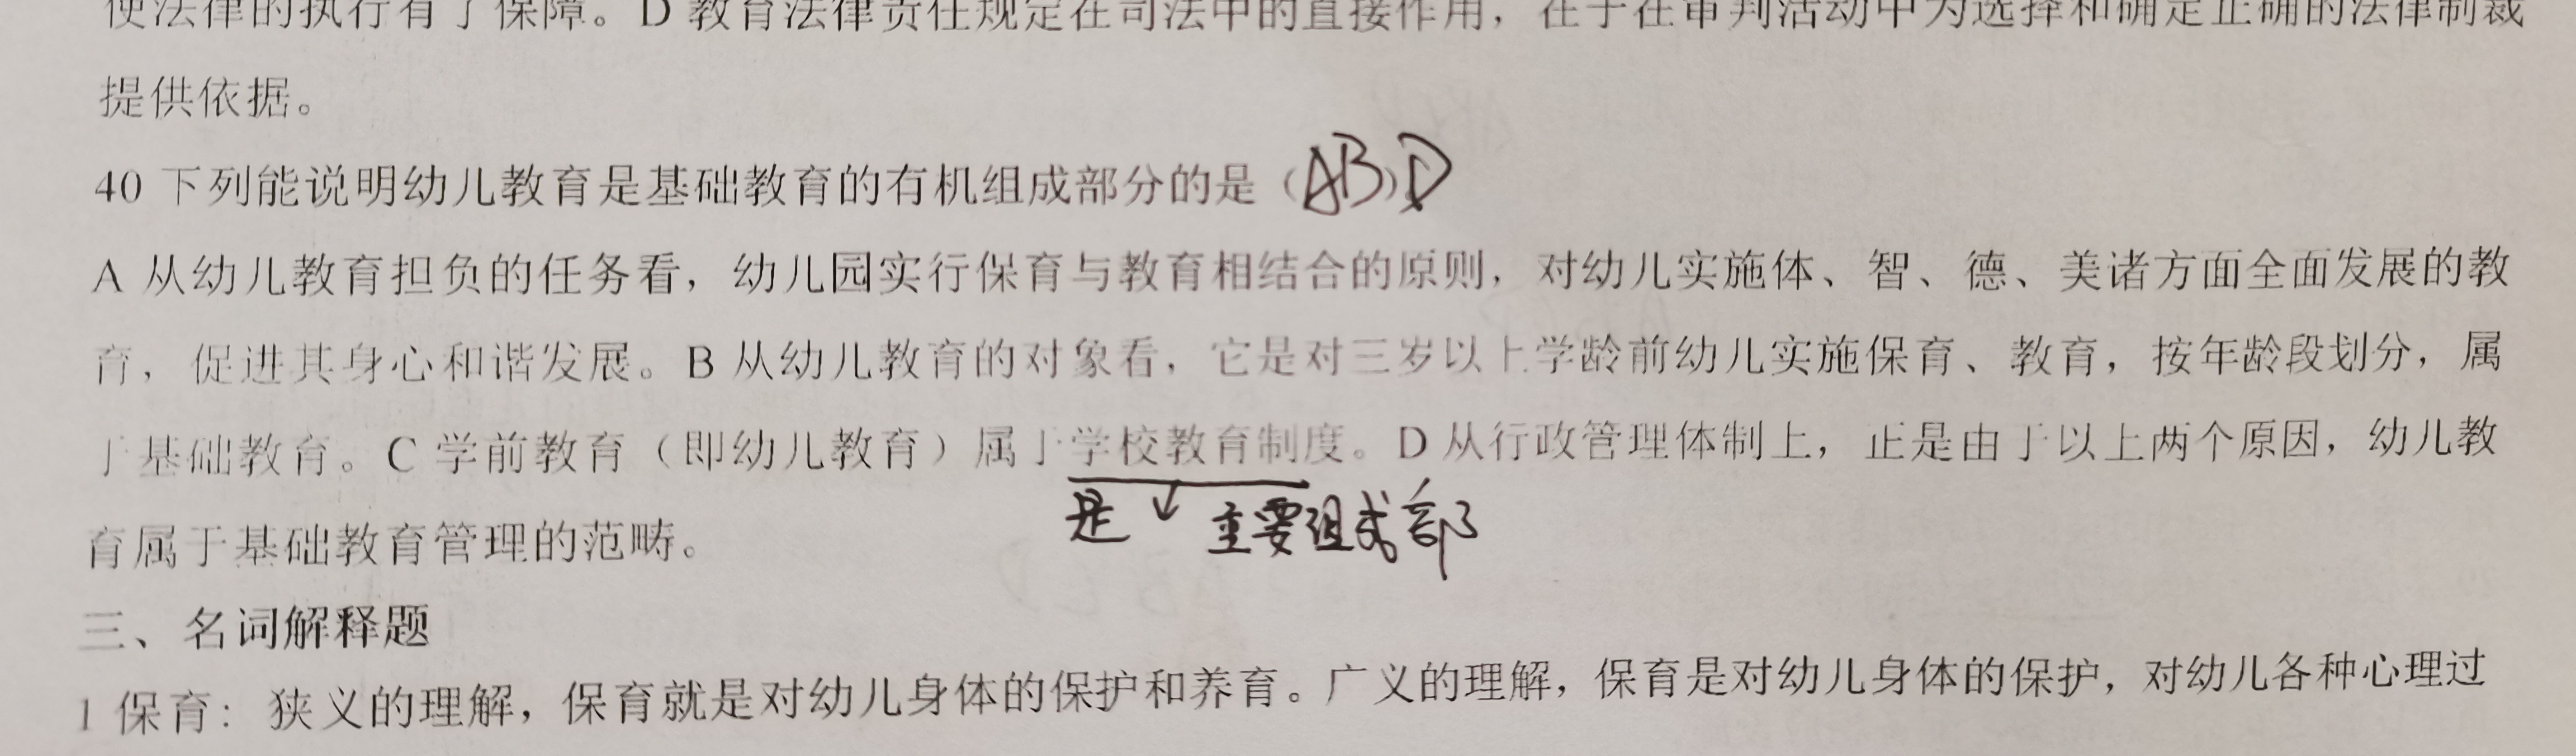 使法律的执行有了保障。D 教育法律责任规定在司法中的直接作用，在于在审判活动中为选择和确定正确的法律制裁
提供依据。
40 下列能说明幼儿教育是基础教育的有机组成部分的是（AB）D
A 从幼儿教育担负的任务看，幼儿园实行保育与教育相结合的原则，对幼儿实施体、智、德、美诸方面全面发展的教
育，促进其身心和谐发展。B 从幼儿教育的对象看，它是对三岁以上学龄前幼儿实施保育、教育，按年龄段划分，属
于基础教育。C 学前教育（即幼儿教育）属于学校教育制度。D 从行政管理体制上，正是由于以上两个原因，幼儿教
是 主要组成部
育属于基础教育管理的范畴。
三、名词解释题
1 保育：狭义的理解，保育就是对幼儿身体的保护和养育。广义的理解，保育是对幼儿身体的保护，对幼儿各种心理过